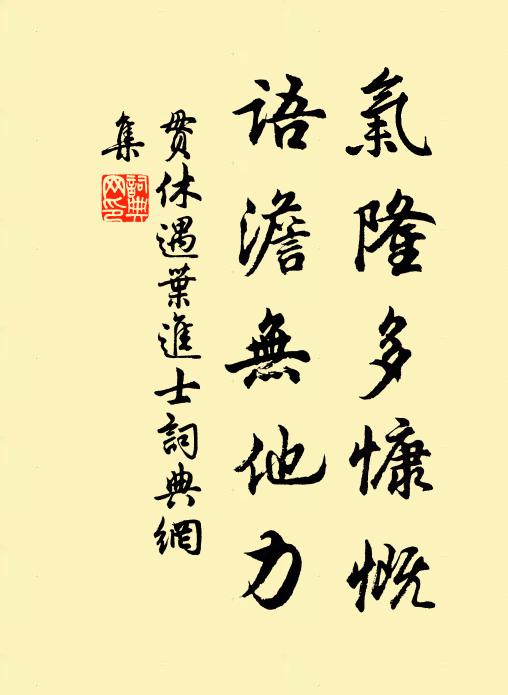 氣隆多慷慨
語澹無他力
貫休遇葉進士詞典網
集
詞典
网印